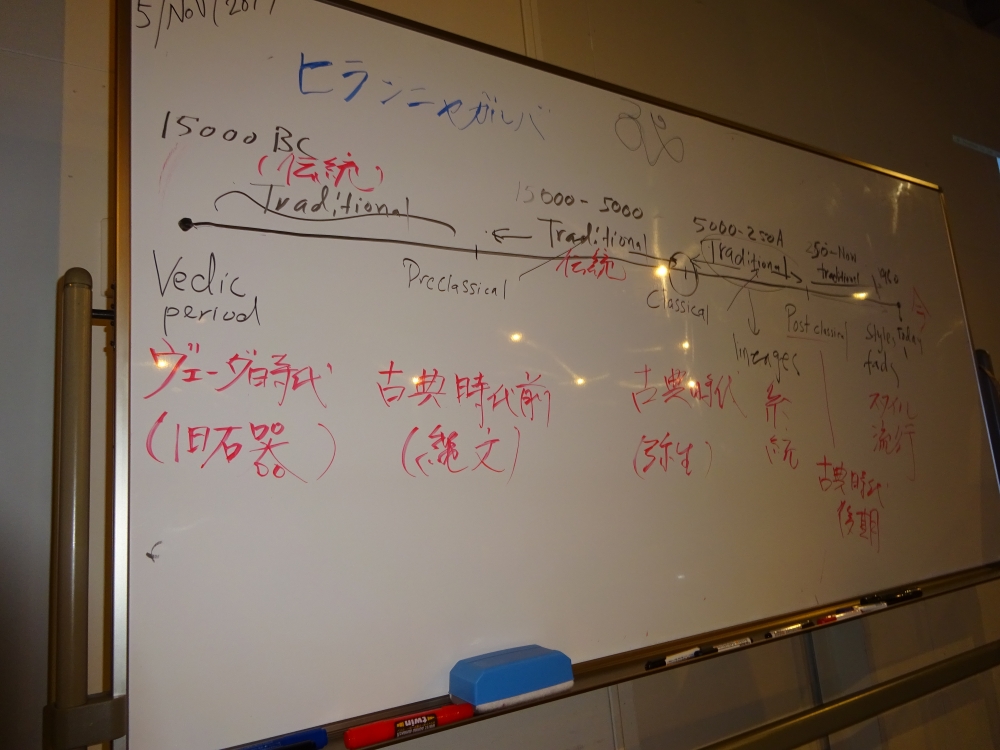 5/Nov/201
ヒランニャガルバ
15000 BC
(伝統)
Traditional
15000-5000
Traditional
伝統
5000-250A
Traditional
traditional
Preclassical
Classical
Vedic
period
lineages
Post classical
Styles, today
fads
ヴェーダ時代
(旧石器)
古典時代前
(縄文)
古典時代
(弥生)
系
統
古典時代
後期
スタイル
流行
twin